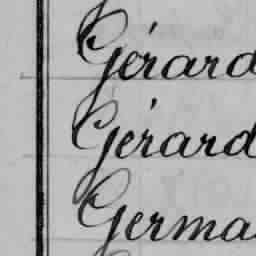 Gérard
Gérard
Germa